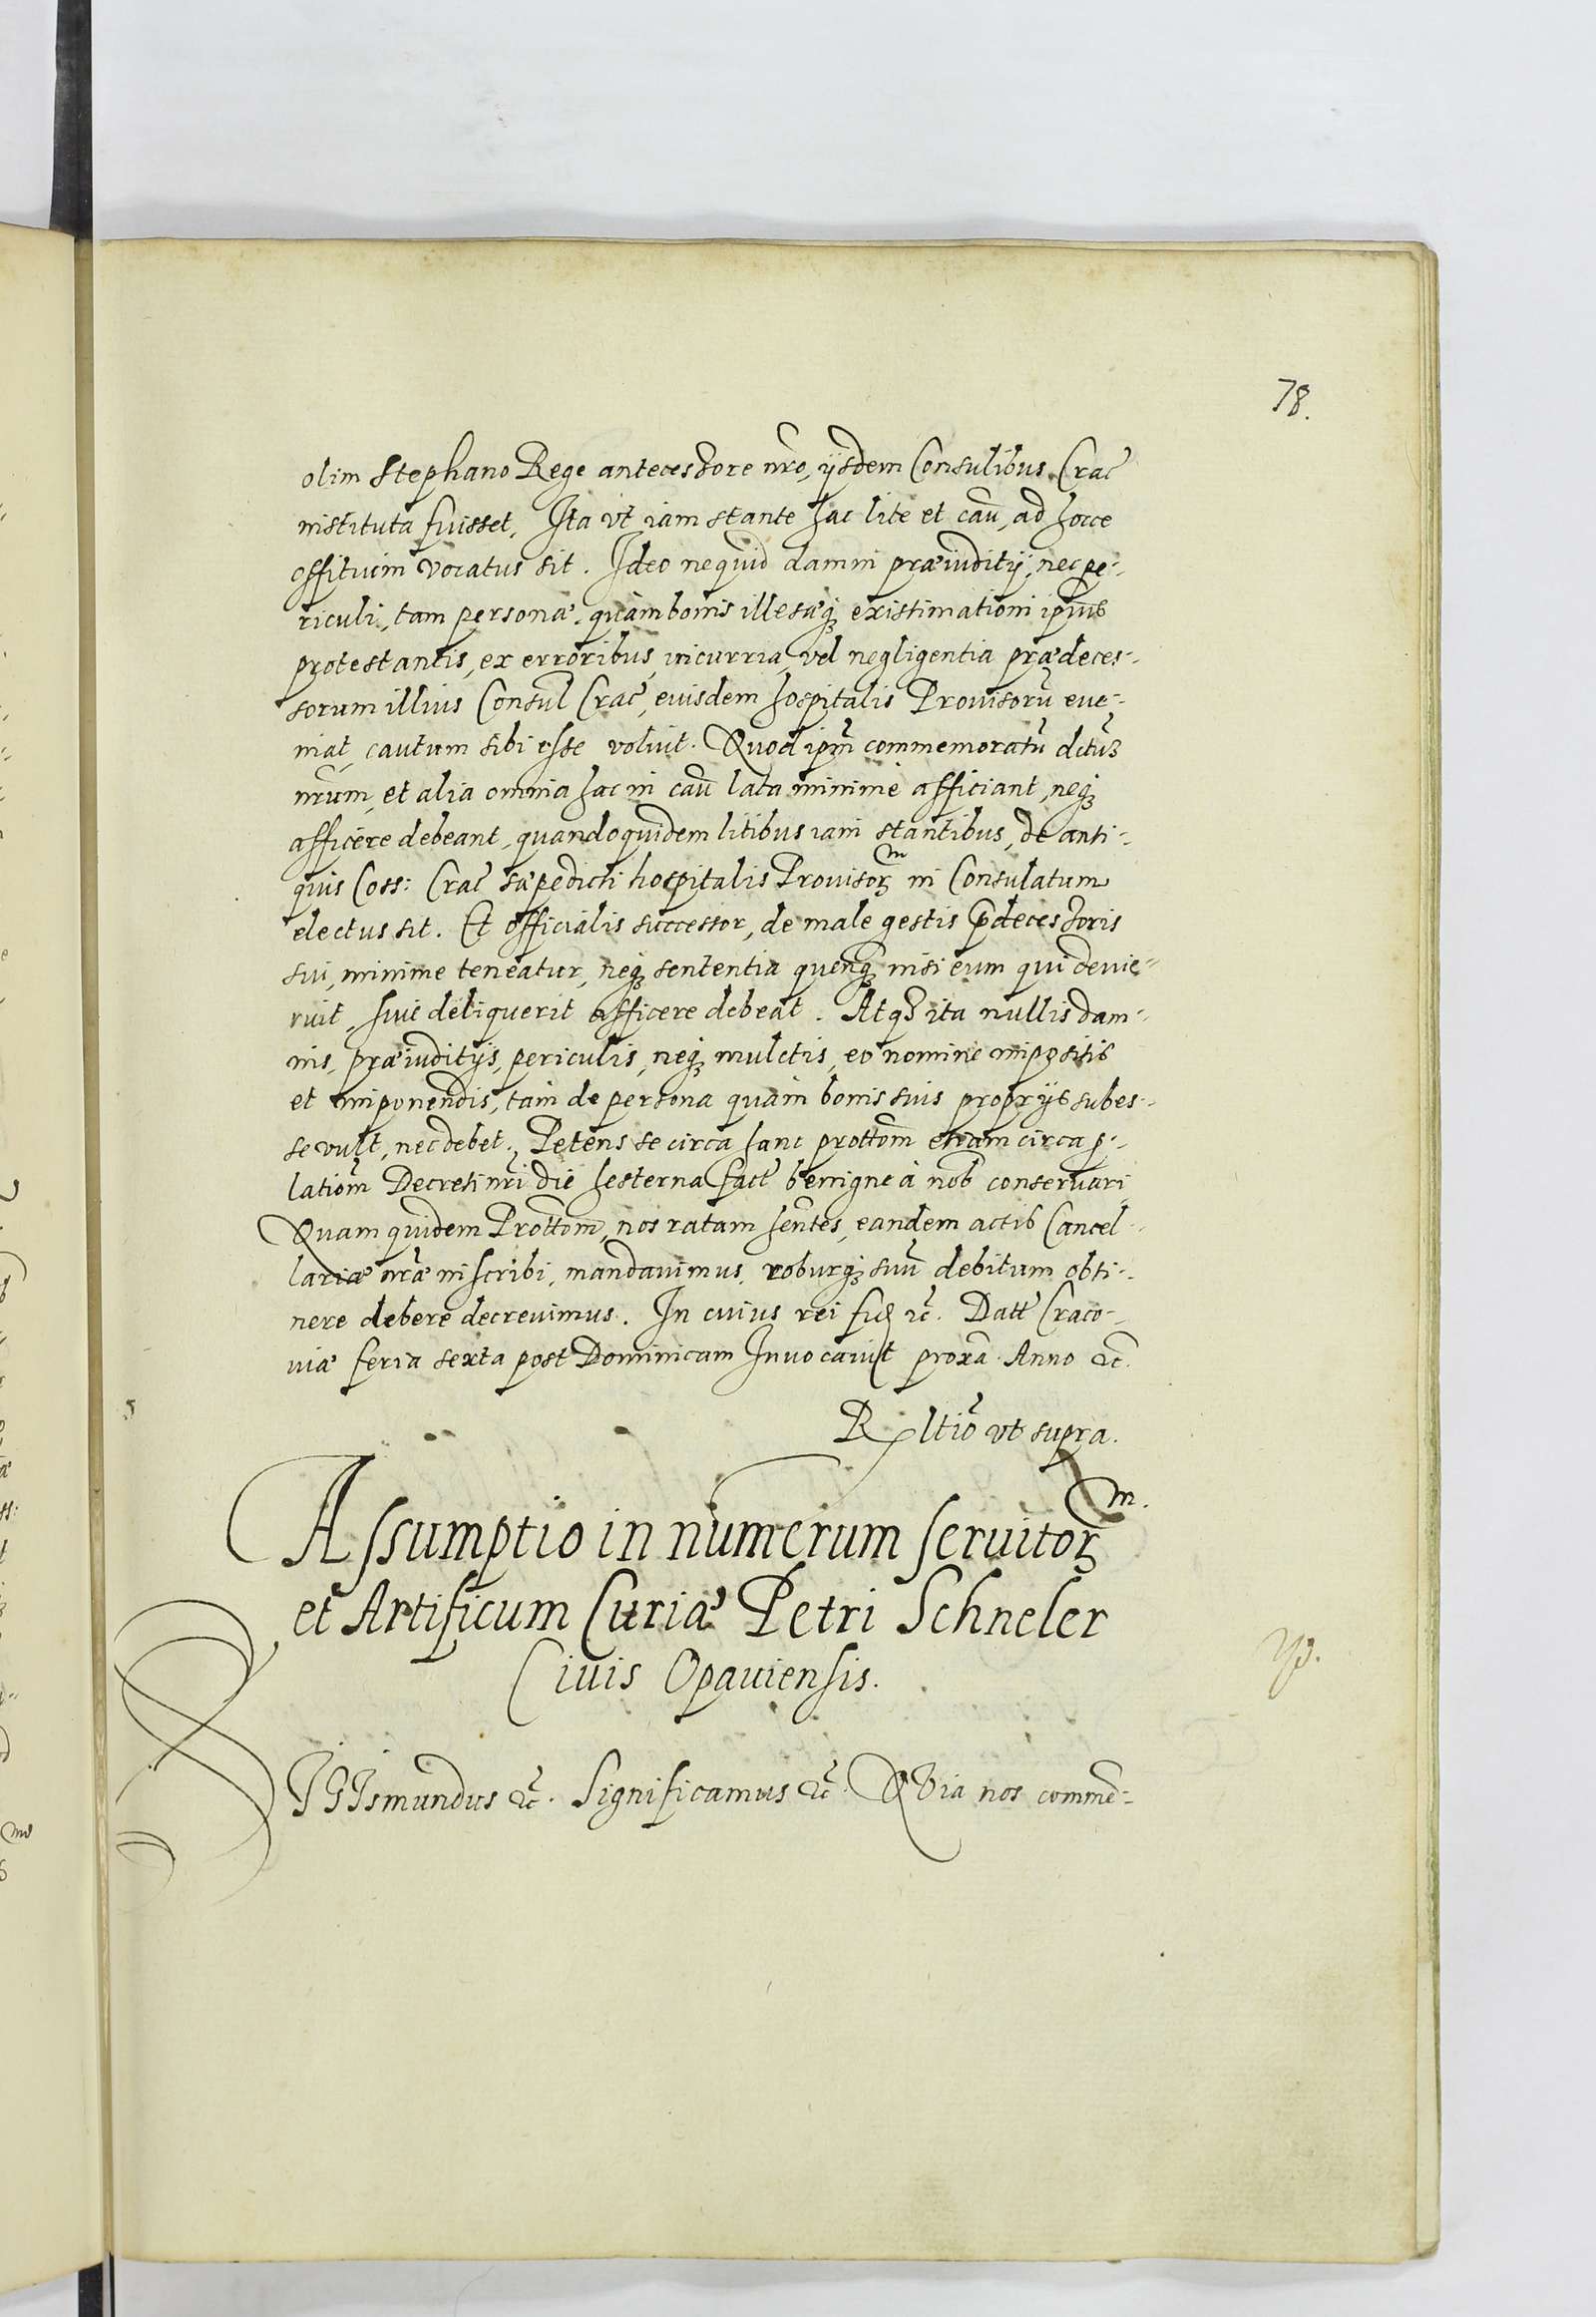 78.
olim Stephano Rege antecessore nr̃o, ijsdem Consulibus Crac̃
instituta fuisset, Ita vt iam stante hac lite et cau̅, ad hocce
offitium vocatus sit. Ideo nequid damni præiuditij, nec pe-
riculi, tam personæ, quàm bonis illesæq; existimationi ipsius
protestantis, ex erroribus, incurria, vel negligentia prædeces-
sorum illius Consul̃ Crac̃, euisdem hospitalis Prouisorũ eue-
niat, cautum sibi esse voluit. Quod ipm̃ commemoratũ dctũ
nr̃um, et alia omnia hac in cau̅ lata minimè afficiant, neq;
afficere debeant, quandoquidem litibus iam stantibus, de anti-
quis Coss: Crac̃ sæpedicti hospitalis Prouisorm in Consulatum
electus sit. Et officialis successor, de male gestis p̃decessoris
sui, minime teneatur, neq; sententia quenq; nisi eum qui denie-
ruit, siue deliquerit afficere debeat. Atq3 ita nullis dam-
nis, præiuditijs, periculis, neq; mulctis, eo nomine impositis
et imponendis, tam de persona quàm bonis suis proprijs subes-
se vult, nec debet. Petens se circa hanc prottom̃ etiam circa p-
latiom̃ Decreti nr̃i die hesterna fact̃ benigne à nob̃ conseruari
Quam quidem Prottom̃, nos ratam hentes, eandem actis Cancel-
lariæ nr̃æ inscribi, mandauimus, roburq; suũ debitum obti-
nere debere decreuimus. In cuius rei fid̃ &c̃. Datt̃ Craco-
uiæ feria sexta post Dominicam Inuocauit proxã Anno &c̃.
Rltiõ vt supra.
Assumptio in numerum seruitorm.
et Artificum Curiæ Petri Schneler
Ciuis Opauiensis.
SIGIsmundus &c̃. Significamus &c̃. QVia nos commẽ-